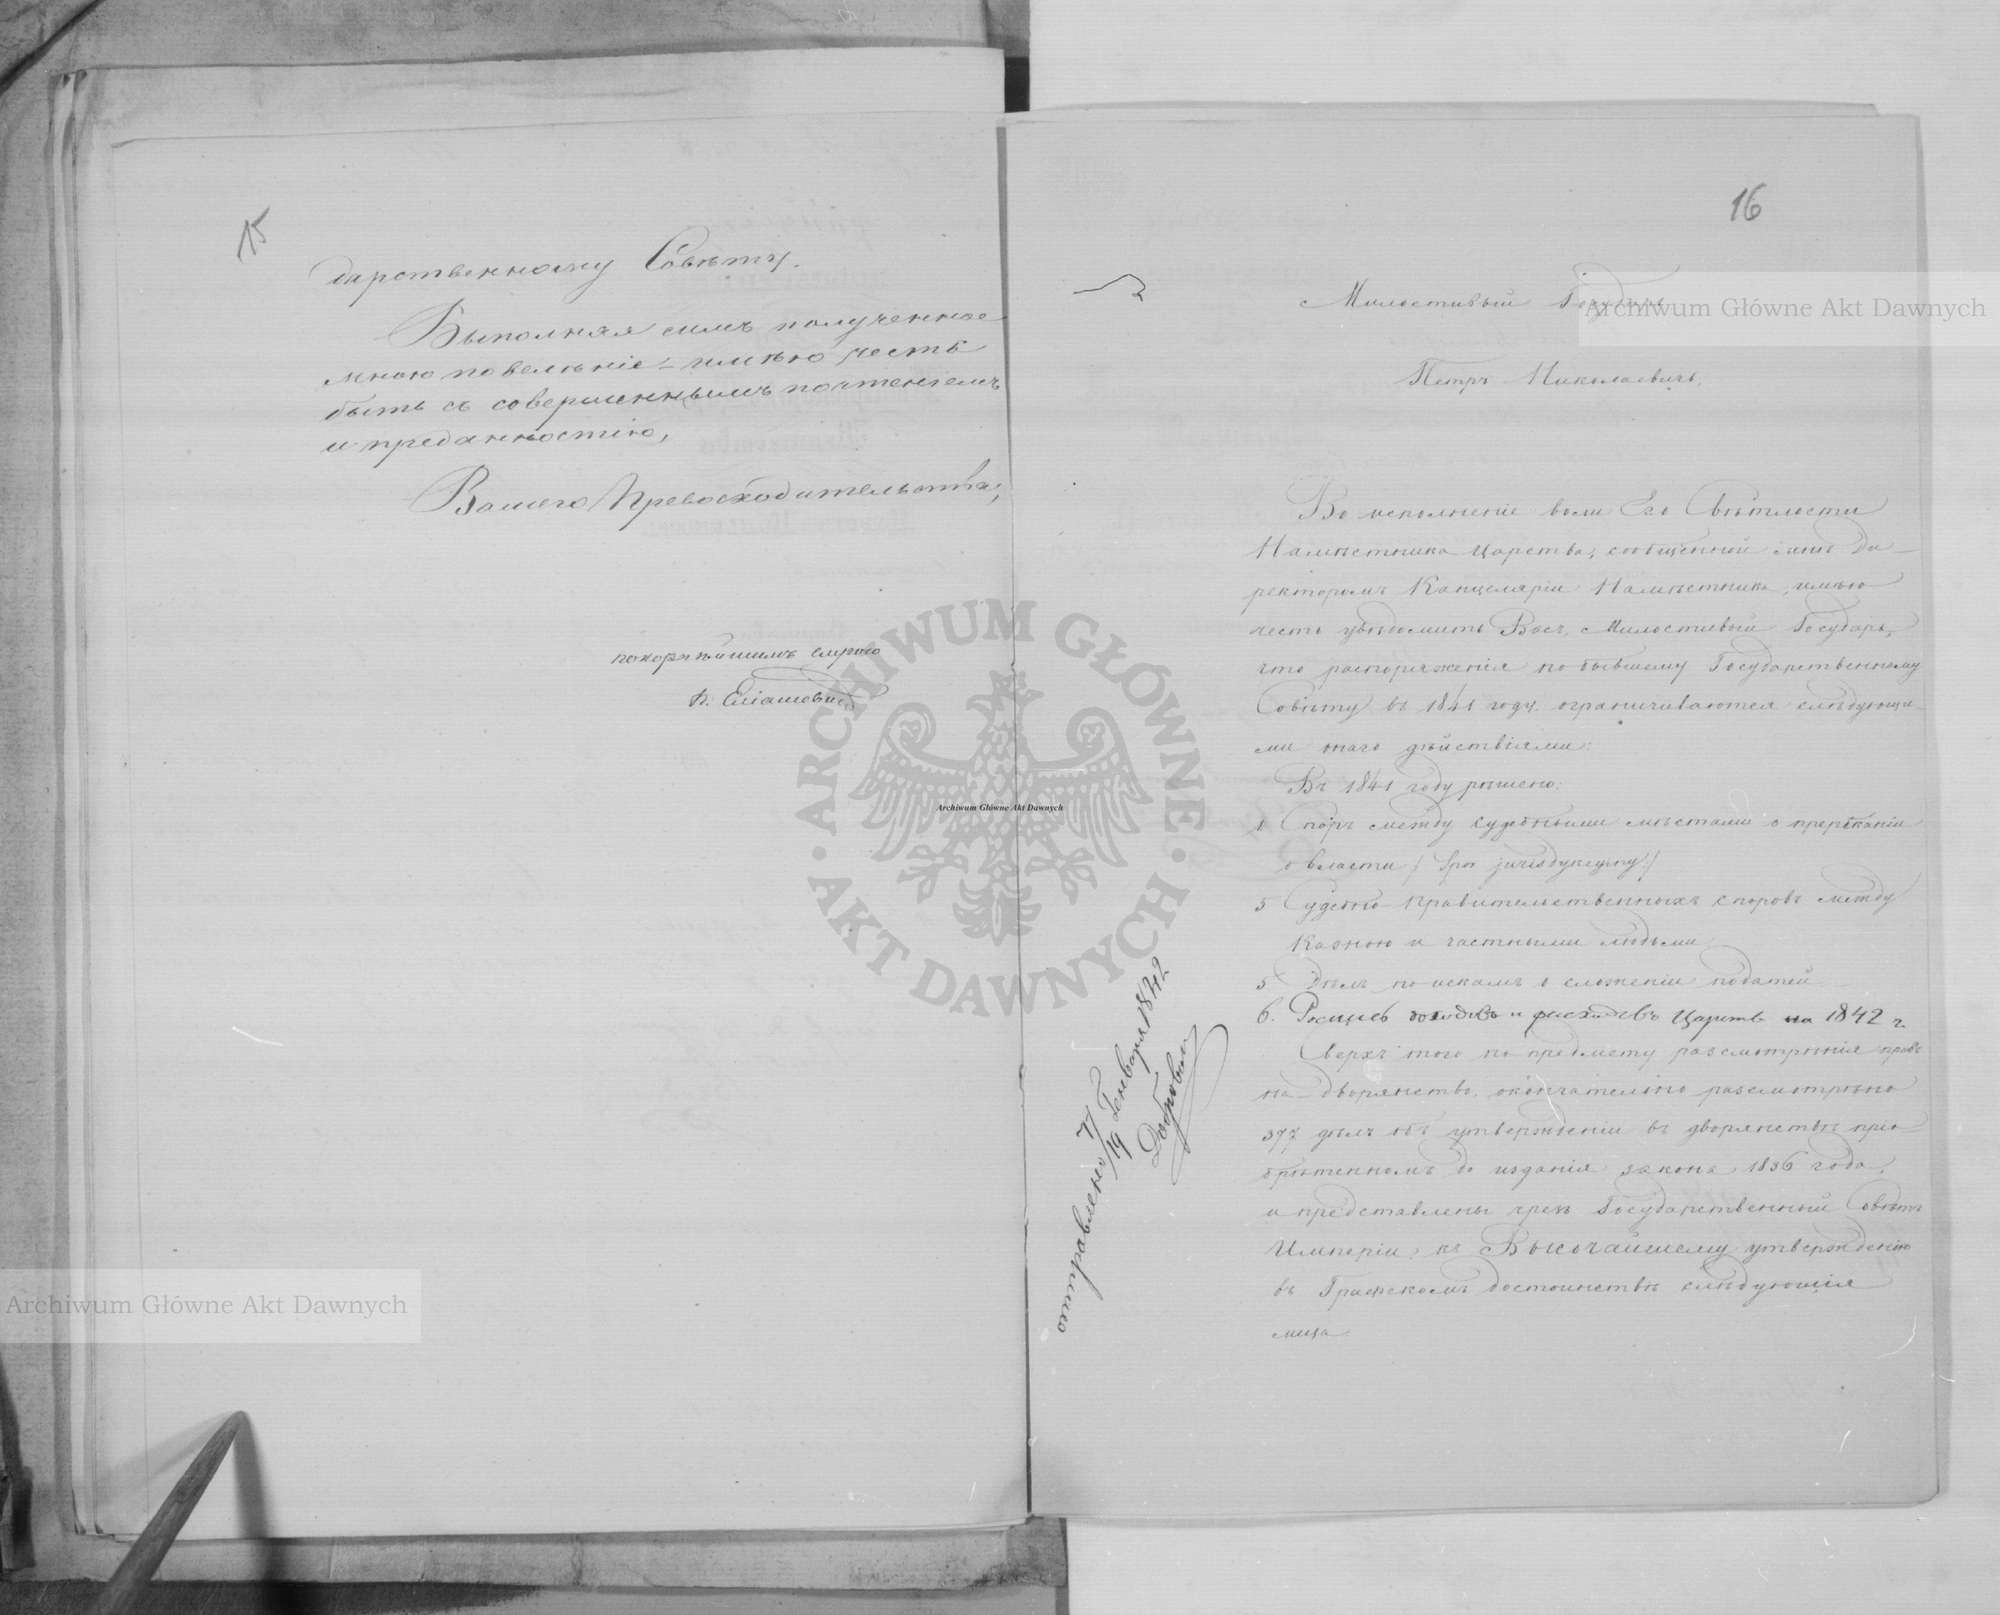 15
дарственному Совѣту.
Выполняя симъ полученное
мною повелѣніе имѣю честь
быть съ совершеннымъ почтеніемъ
и преданностію,
Вашего Превосходительства,
покорнѣйшимъ слугою
16
Милостивый Государь
Петръ Николаевичъ,
Во исполненіе воли Его Свѣтлости
Намѣстника Царства, сообщенной мнѣ Ди-
ректоромъ Канцеляріи Намѣстника, имѣю
честь увѣдомить Васъ, Милостивый Государь,
что распоряженія по бывшему Государственному
Совѣту въ 1841 году ограничиваются слѣдующи-
ми онаго дѣйствіями:
Въ 1841 году рѣшено:
1 Споръ между судебными мѣстами о пререканіи
о власти /: Spor jurisdykcyiny :/
5 Судебно-правительственныхъ споровъ между
Казною и частными людьми.
5 Дѣлъ по искамъ о сложеніи податей.
6. Роспись доходовъ и расходовъ Царства на 1842 г.
Сверхъ того по предмету разсмотрѣнія правъ
на дворянство, окончательно разсмотрѣно
377 дѣлъ объ утвержденіи въ дворянствѣ прі-
обрѣтенномъ до изданія закона 1836 года,
и представлены чрезъ Государственный Совѣтъ
Имперіи, къ Высочайшему утвержденію
въ Графскомъ достоинствѣ слѣдующія
лица
отправлено 7/19 Генваря 1842
Archiwum Główne Akt Dawnych
Archiwum Główne Akt Dawnych
Archiwum Główne Akt Dawnych
ARCHIWUM GŁÓWNE · AKT DAWNYCH ·